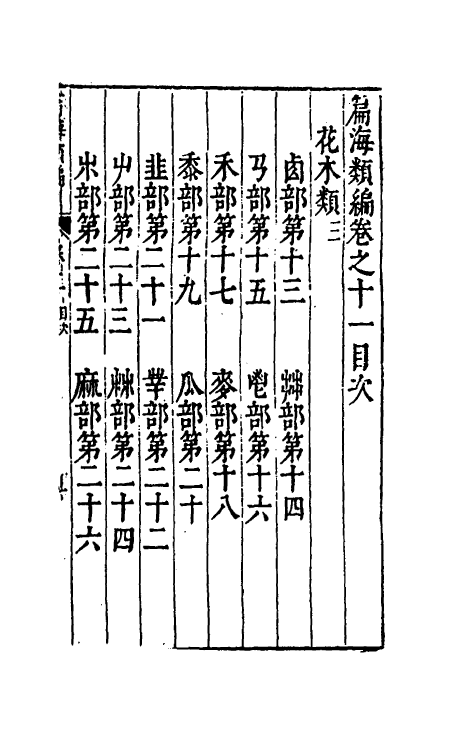 篇海類編卷之十一目次
花木類三
卤部第十三　茻部第十四
𢎘部第十五　部第十六
禾部第十七　麥部第十八
黍部第十九　瓜部第二十
韭部第二十一　部第二十二
屮部第二十三　𣏟部第二十四
𣎳部第二十五　麻部第二十六
目次